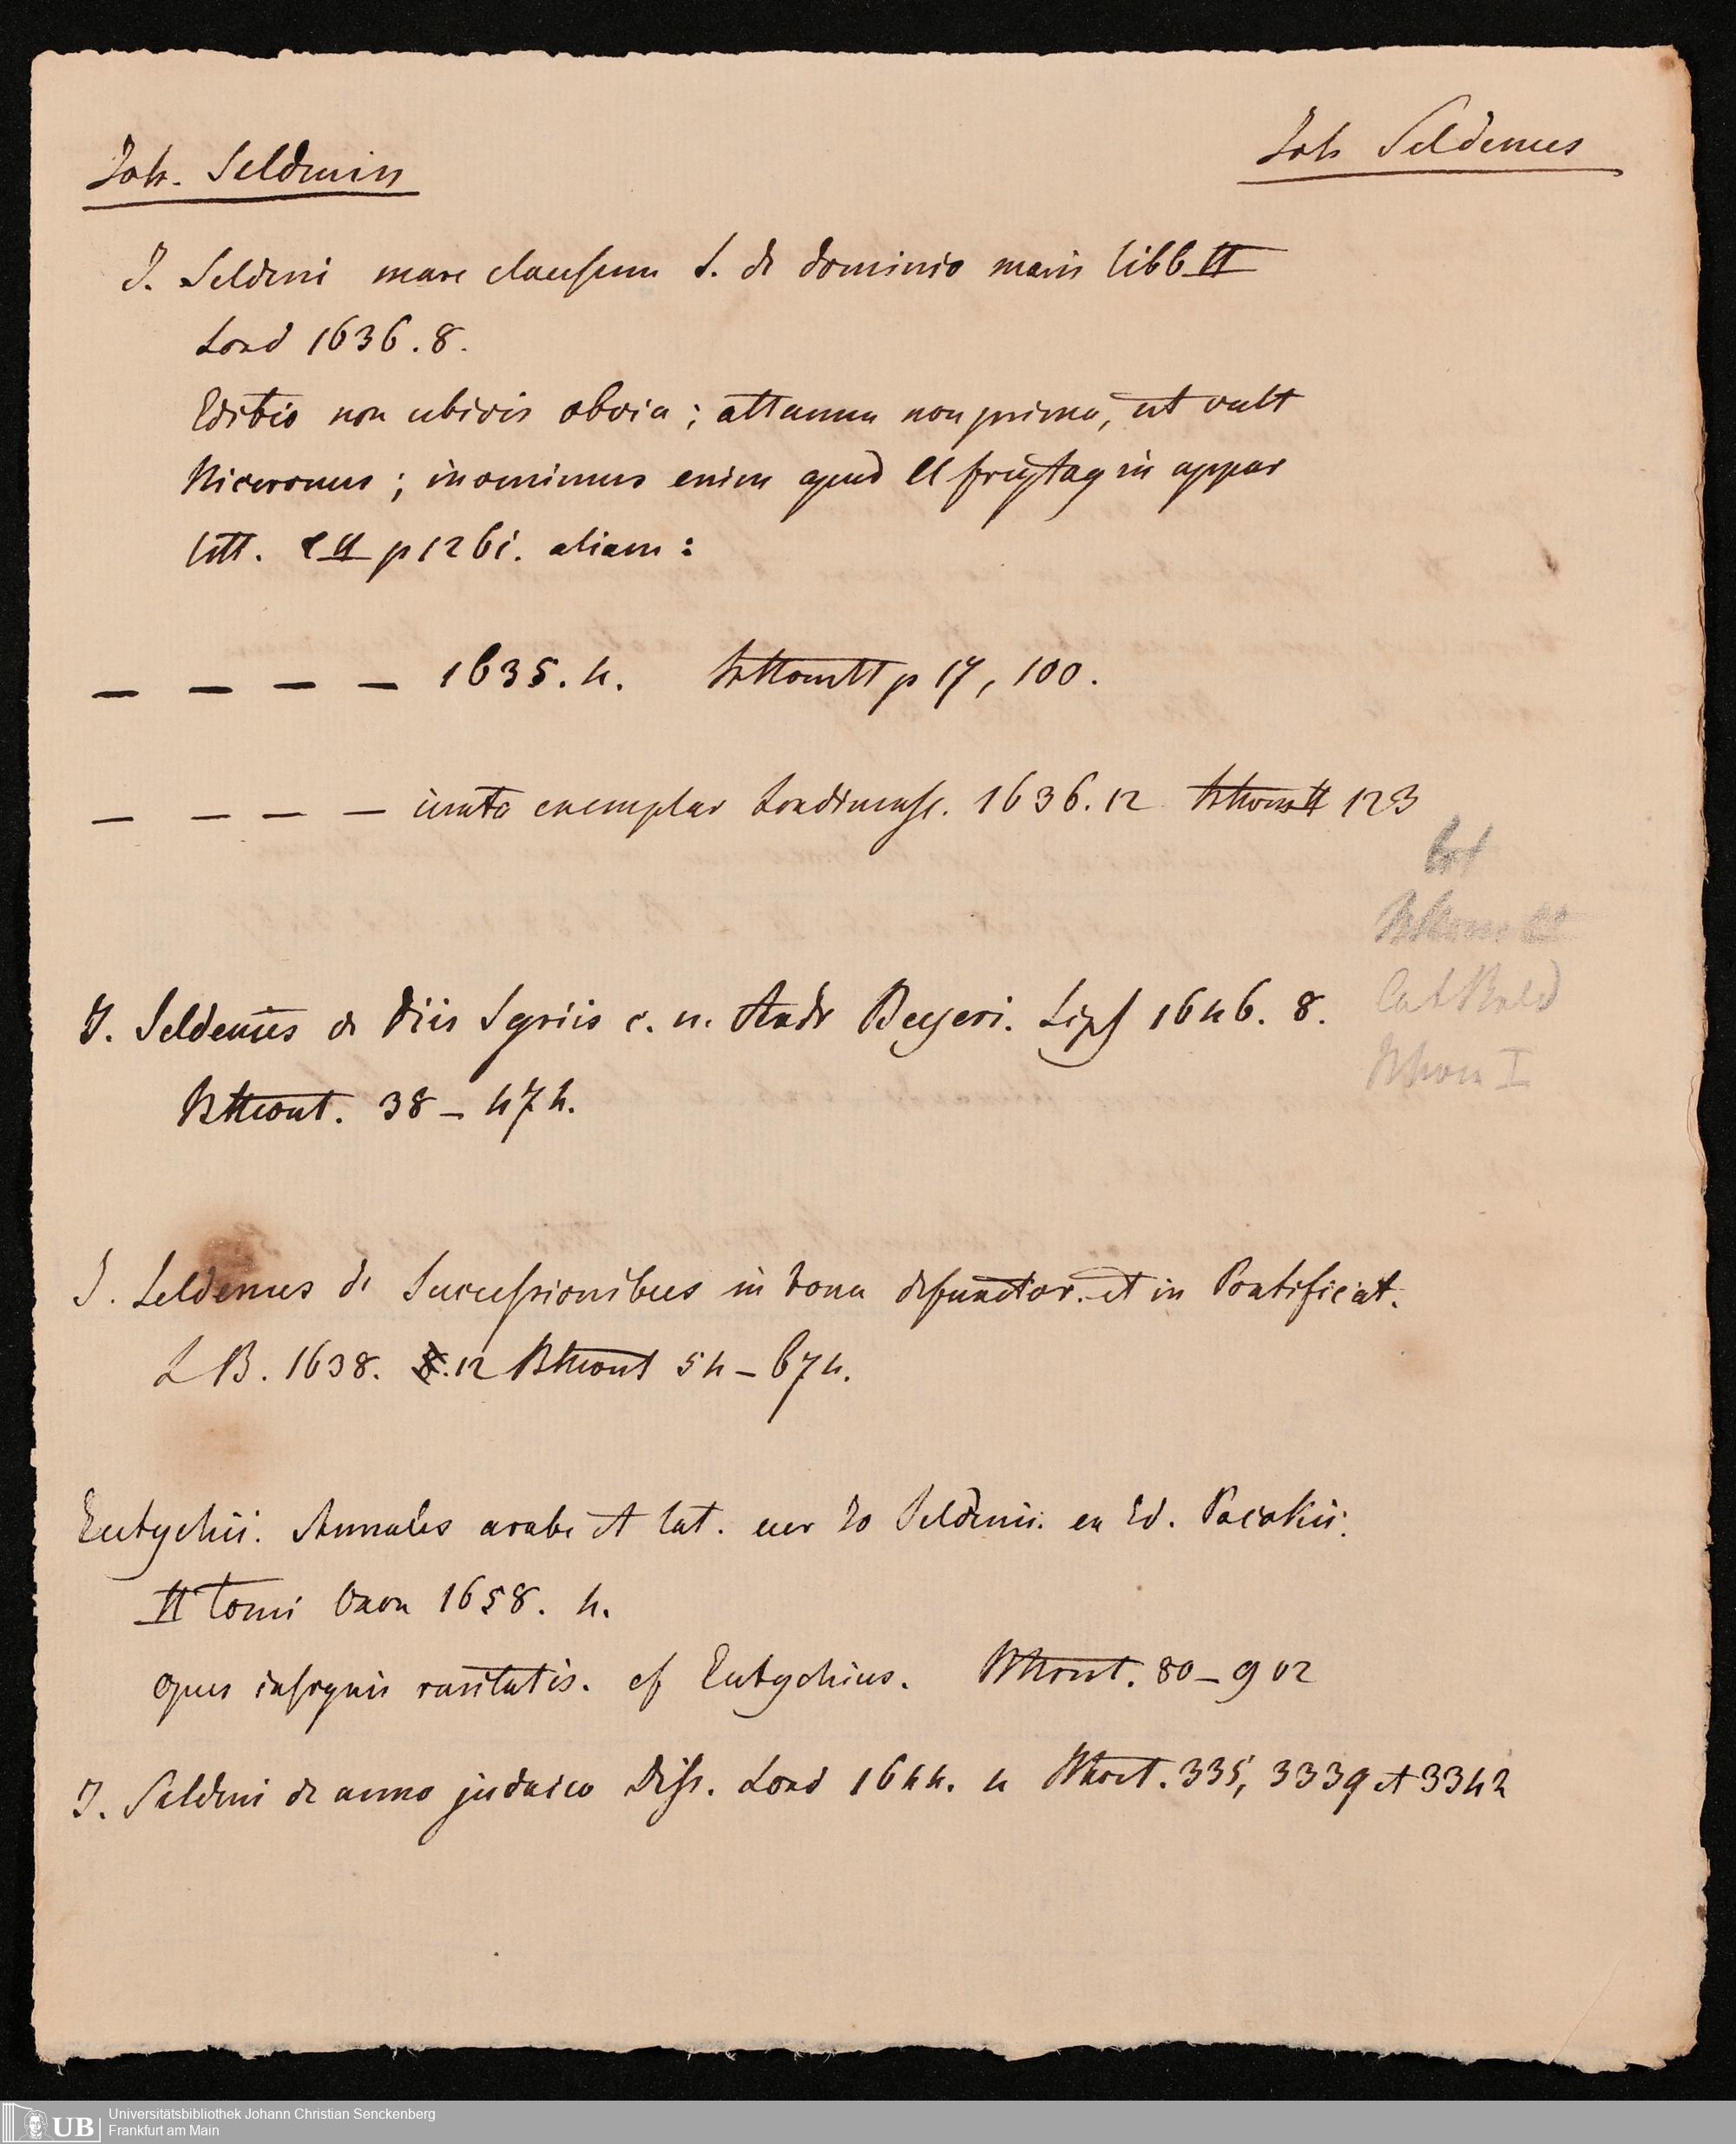 Joh. Seldenus
Joh Seldenus
J. Seldeni mare clausum s. de dominio maris libb II
Lond 1636. 8.
Editio non ubivis obvia; attamen non prima, ut vult
Niceronus; invenimus enim apud Cl Freytag in appar
litt. II p 126 aliam:
— — — — 1635. 4. p 17, 100.
— — — — iuxta exemplar Londinense. 1636. 12 123
J. Seldenus de Diis Syriis c. n. Andr Beyeri. Lips 1646. 8.
38 – 474.
J. Seldenus de Successionibus in bona defunctor. et in Pontificat.
L B. 1638. 12 54 – 674.
Eutychii. Annales arab. et lat. cur Jo Seldeni. ex Ed. Pocokii.
II Tomi Oxon 1658. 4.
opus insignis raritatis. cf Eutychius. 80 – 902
J. Seldeni de anno judaico Diss. Lond 1644. 4 335, 3339 et 3342
UB
Universitätsbibliothek Johann Christian Senckenberg
Frankfurt am Main